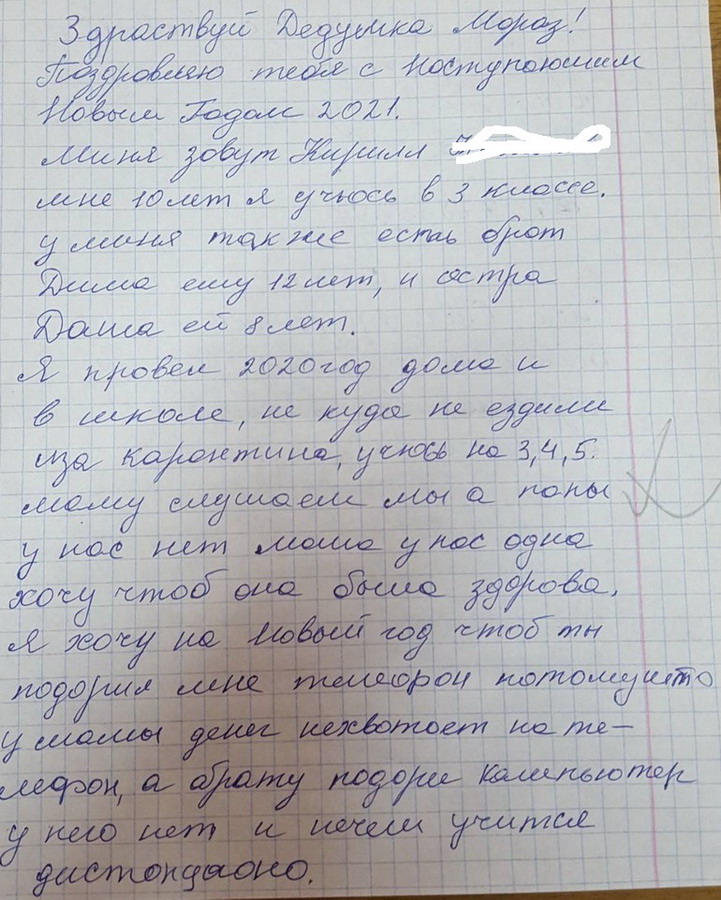 Здраствуй Дедушка Мороз!
Поздровляю тебя с Ноступоюшим
Новым Годом 2021.
Миня зовут Кирилл
мне 10 лет я учюсь в 3 классе.
у миня также есть брот
Дима ему 12 лет, и состра
Даша ей 8 лет.
Я провел 2020 год дома и
в школе, не куда не ездили
иза каронтина, учюсь на 3,4,5.
маму слушаем мы а папы
у нас нет мама у нас одна
хочу чтоб она была здорова.
Я хочу на Новый год чтоб ты
подорил мне телефон потомушто
у мамы денег нехвотает на те-
лефон, а брату подори компьютер
у него нет и нечем учится
дистонцаоно.